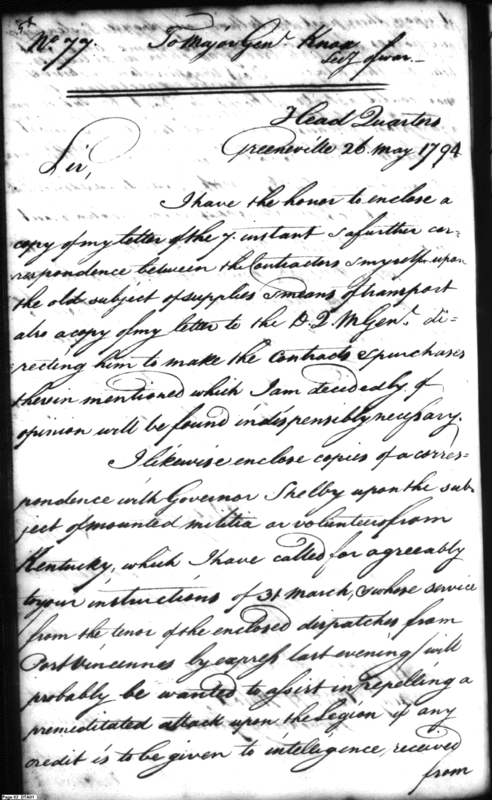 No. 77. To Major Genl. Knox
Secy of war.
Head Quarters
Greeneville 26 May 1794
Sir,
I have the honor to enclose a
copy of my letter of the 7. instant & a further cor=
respondence between the Contractors & myself upon
the old subject of supplies & means of transport
also a copy of my letter to the D. Q. M Genl. di=
recting him to make the Contracts & purchases
therein mentioned which I am decidedly of
opinion will be found indispensibly necessary.
I likewise enclose copies of a corres=
pondence with Governor Shelby upon the sub
ject of mounted militia or volunteers from
Kentucky, which I have called for agreeably
to your instructions of 31 March, & whose service
from the tenor of the enclosed dispatches from
Post Vincennes by express last evening will
probably be wanted to assist in repelling a
premeditated attack upon the Legion if any
credit is to be given to intellegence, received
from